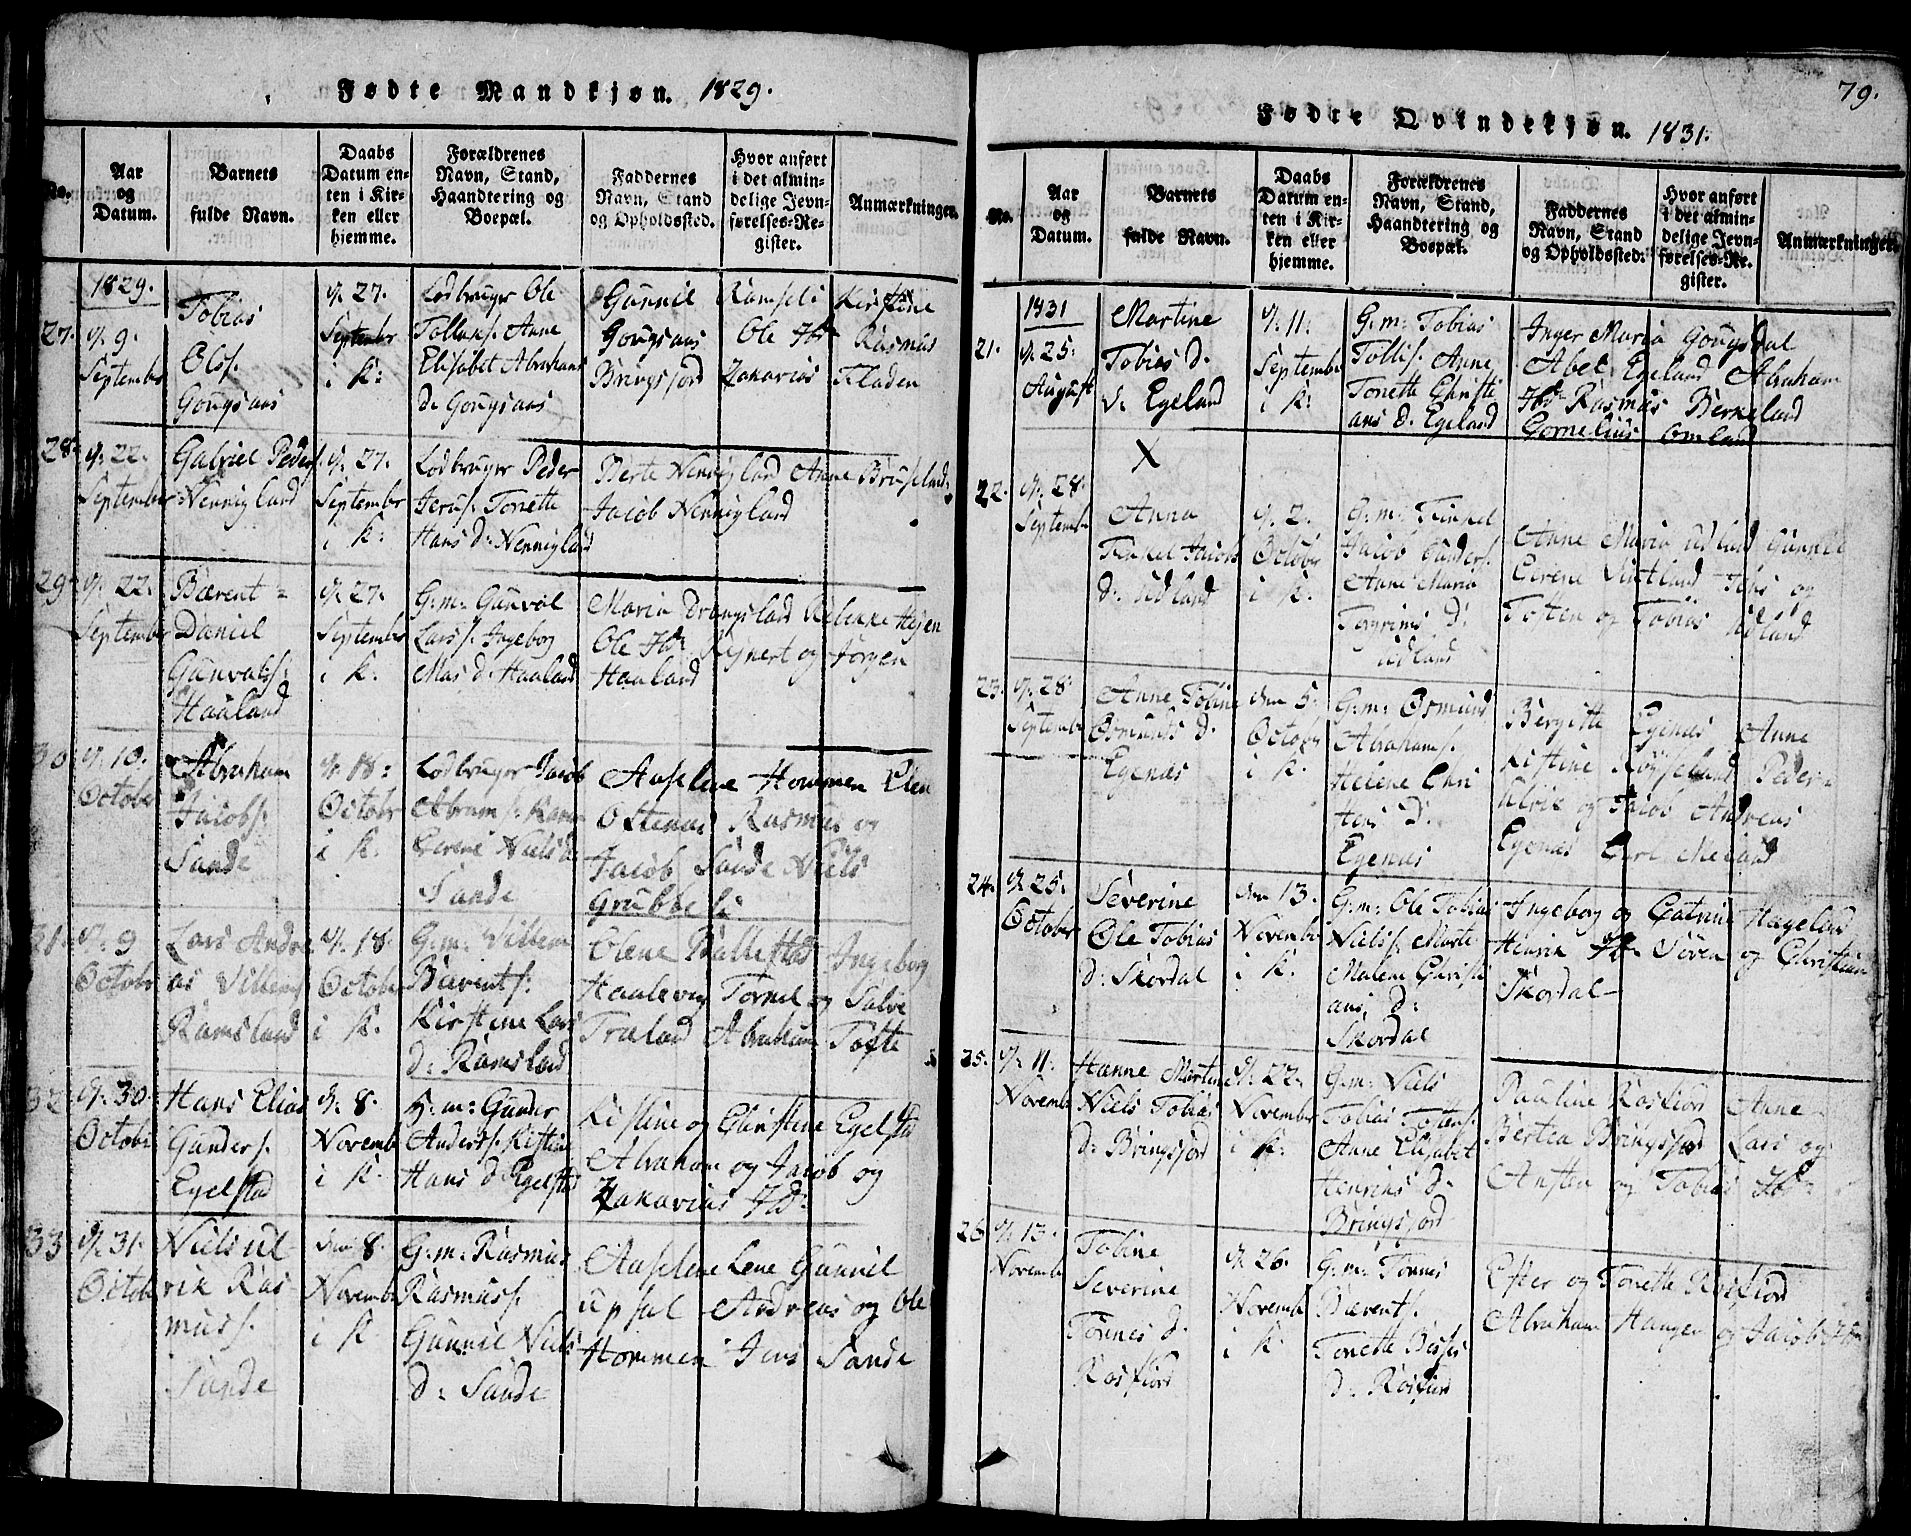 Fødte Mandkjøn. 1829.
No.
Aar og Datum.
Barnets fulde Navn.
Daabs Datum enten i Kirken eller hjemme.
Forældrenes Navn, Stand, Haandtering og Boepæl.
Faddernes Navn, Stand og Opholdssted.
Hvor anført i det almindelige Jevnførelses-Register.
Anmærkninger.
1829.
27. d. 9. September
Tobias Ols. Gougsaas
d. 27. September i K:
Lodbruger Ole Tollaks. Anne Elisabet Abrahams d. Gougsaas
Gunnil Ramsli Kirstine Gougsaas Ole Ibd Rasmus Bringsjord Zakarias Fladen
28. d. 22. September
Gabriel Peders. Nennigland
d. 27. September i K:
Lodbruger Peder Jerus. Tonette Hans d: Nennigland
Berte Nennigland Anne Bruseland
Jacob Nennigland
29. d. 22. September
Bærent Daniel Gunvals. Haaland
d. 27. September i K.
G: m: Gunval Lars s. Ingeborg Mas d: Haaland
Maria Drangsland Rebekke Høyen
Ole Ibd Rejnert og Jørgen
Haaland
30. d. 10. October
Abraham Jacobs. Sande
d. 18: October i K.
Lodbruger Jacob Abrams. Karen Serene Niels d: Sande
Aaselene Hommen Elen
Ostenas Rasmus og
Jacob Sande Niels
Grubbeli
31. d. 9 October
Lars Andreas Villems. Ramsland
d. 18. October i K.
G: m: Villem Bærents: Kirstine Lars d: Ramsland
Olene Ballestad Ingeborg
Haaleveg Tornil og Salve
Træland Abraham Tofte
32 d. 30. October
Hans Elias Gunders. Egelstad
d. 8. Novembr i K.
H: m: Gunder Anders s. Kistine Hans d. Egelstad
Kistine og Christine Egelstad
Abraham og Jacob og
Zakarias Ibd:
33 d. 31. October
Niels Ulrik Rasmuss. Sande
den 8. Novembr i K.
G: m: Rasmus Rasmuss. Gunnil Niels d: Sande
Aaselene Lene Gunnil
Upsal Andreas og Ole
Hommen Jens Sande
79.
Fødte Qvindekjøn. 1831.
No.
Aar og Datum.
Barnets fulde Navn.
Daabs Datum enten i Kirken eller hjemme.
Forældrenes Navn, Stand, Haandtering og Boepæl.
Faddernes Navn, Stand og Opholdssted.
Hvor anført i det almindelige Jevnførelses-Re. gister.
Anmærkninger.
1831
21. d. 25. August
Martine Tobias d. d. Egeland
d. 11. September i K:
G: m: Tobias Tollis. Anne Tonette Christians d. Egeland
Inger Maria Gougsdal
Abel Egeland Abraham
Ibd Rasmus Berkeland
Cornelius Omland
X
22. d. 28. September
Anna Tinkel Jacobs d: Udland
d. 2. October i K.
G: m: Tinkel Jacob Gunders. Anne Maria Tønnes d: Udland
Anne Maria Udland Gunnil
Serene Vintland Jens og
Toften og Tobias Udland
23. d. 28. September
Anne Tobine Osmunds d. Egenæs
den 5. October i K.
G: m: Osmund Abrahams. Helene Christens d: Egenæs
Bergitte Egenæs Anne
Kistine Røiseland Peder
Ulrik og Jacob Andreas
Egenæs Carl Meland
24. d. 25. October
Severine Ole Tobias d: Skordal
den 13. Novembr i K.
G: m: Ole Tobias Niels s. Marte Malene Christians d: Skordal
Ingeborg og Catrine Hageland
Henrik Ibd Søren og Christian
Skordal
25. d. 11. Novembr
Hanne Martine Niels Tobias d: Bringsjord
d. 22. November i K:
G: m: Niels Tobias Tostens. Anne Elisabet Henriks d: Bringsjord
Pauline Rosfjord Anne
Bertea Bringsjord Lars og
Ansten og Tobias Ibd
26 d. 13. Novembr
Tobine Severine Tønnes d. Rosfjord
d. 26. Novembr i K.
G: m: Tønnes Bærents. Tonette Beses d: Rosfjord
Ester og Tonette Rosfjord
Abraham Haugen og Jacob Ibd